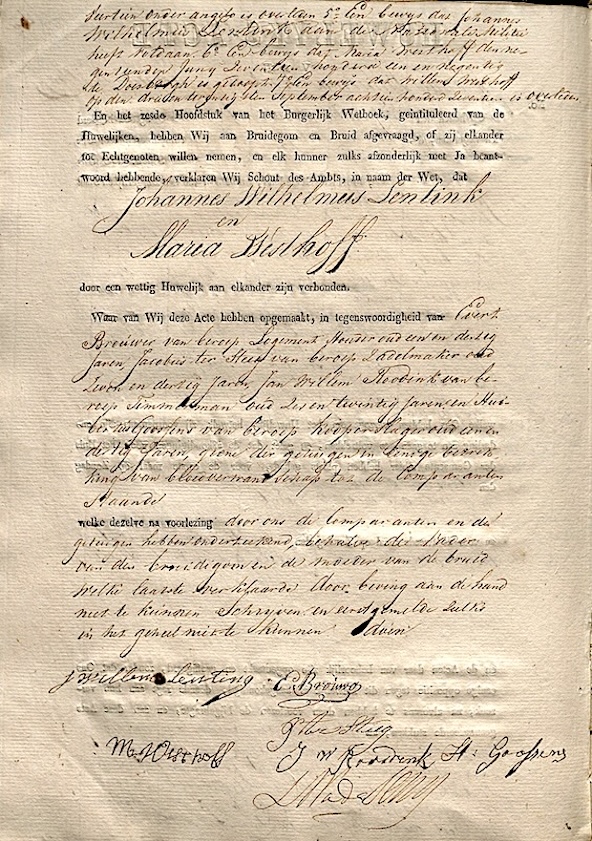 veertien onder angifte is overleden 5° Een bewys dat Johannes
Wilhelmus Lentink aan de Nationale Militie
heeft voldaan 6° Een bewys dat Maria Westhoff den ne-
gen Juny Zeventien honderd een en negentig
te Doesborgh is gedoopt 7° Een bewys dat Willem Westhoff
op den drie en twintigsten September achtien honderd Zeventien is overleden
En het zesde Hoofdstuk van het Burgerlijk Wetboek, geïntituleerd van de
Huwelijken, hebben Wij aan Bruidegom en Bruid afgevraagd, of zij elkander
tot Echtgenoten willen nemen, en elk hunner zulks afzonderlijk met Ja beant-
woord hebbende, verklaren Wij Schout des Ambts, in naam der Wet, dat
Johannes Wilhelmus Lentink
en
Maria Westhoff
door een wettig Huwelijk aan elkander zijn verbonden.
Waar van Wij deze Acte hebben opgemaakt, in tegenswoordigheid van Evert
Brouwer van beroep Logement Houder oud een en dertig
Jaren, Jacobus ter Steeg van beroep Zadelmaker oud
Zeven en dertig Jaren, Jan Willem Roodink van be-
roep Timmerman oud Zes en twintig Jaren, en Hub-
bertus Goossens van beroep Koperslager oud een en
dertig Jaren, geene der getuigen in eenige betrek-
king van bloedverwantschap tot de Comparanten
Staande
welke dezelve na voorlezing door ons de Comparanten en de
getuigen hebben onderteekend, behalve de Vader
van den bruidegom en de moeder van de bruid
welke laatste verklaarde door beving aan de hand
niet te kunnen Schryven en eerstgemelde zulks
in het geheel niet te kunnen doen
J Willem Lenting E: Brouwer
J ter Steeg
M Westhoff J W Roodink H: Goossens